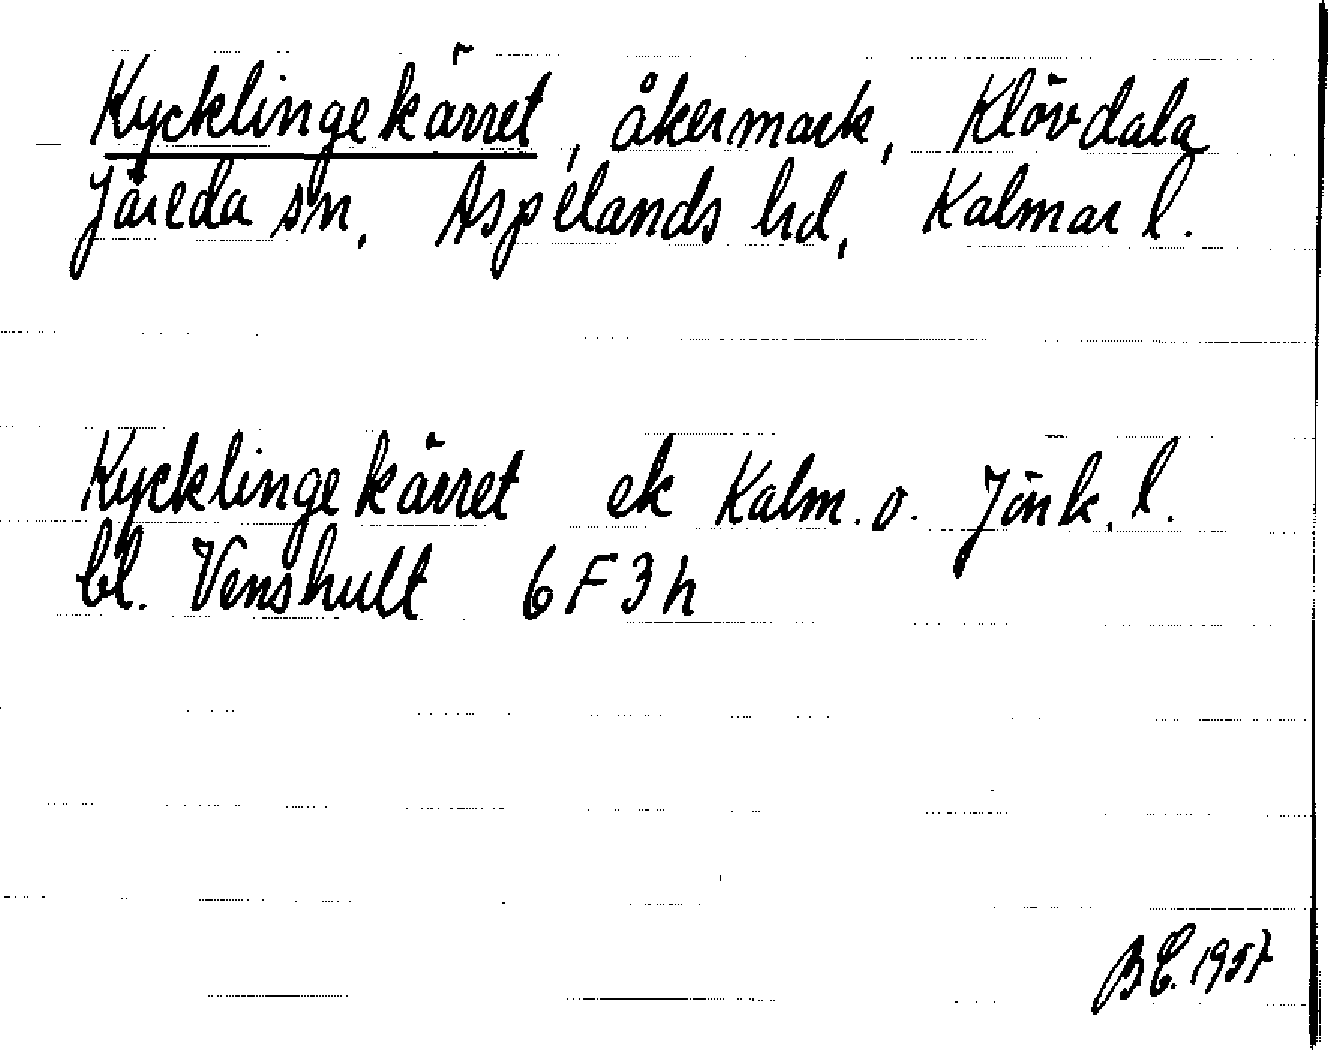 Kycklingekärret, åkermark, Klövdala
Järeda sn, Aspelands hd, Kalmar l.
Kycklingekärret ek Kalm. o. Jönk. l.
bl. Venshult 6F3h
B.E. 1957